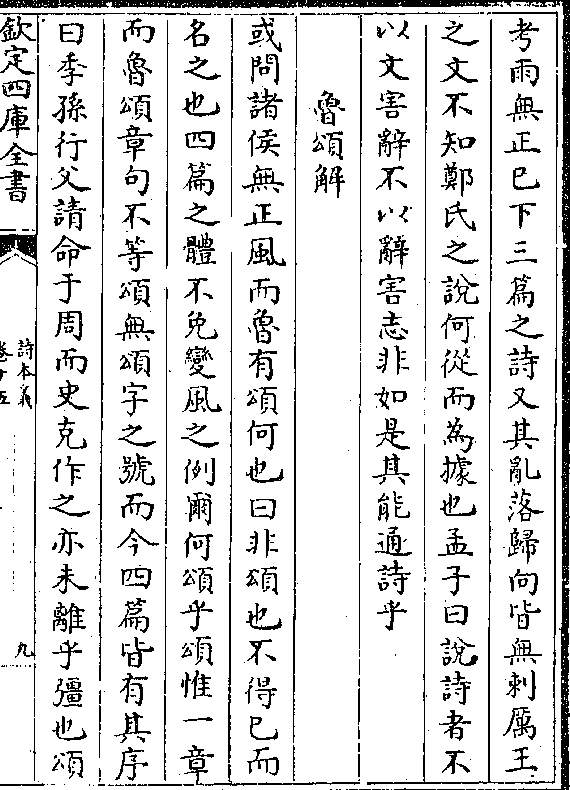 考雨無正已下三篇之詩又其亂落歸向皆無刺厲王
之文不知鄭氏之說何從而為據也孟子曰說詩者不
以文害辭不以辭害志非如是其能通詩乎
魯頌解
或問諸侯無正風而魯有頌何也曰非頌也不得已而
名之也四篇之體不免變風之例爾何頌乎頌惟一章
而魯頌章句不等頌無頌字之號而今四篇皆有其序
曰季孫行父請命于周而史克作之亦未離乎彊也頌
欽定四庫全書
詩本義
卷十五
九